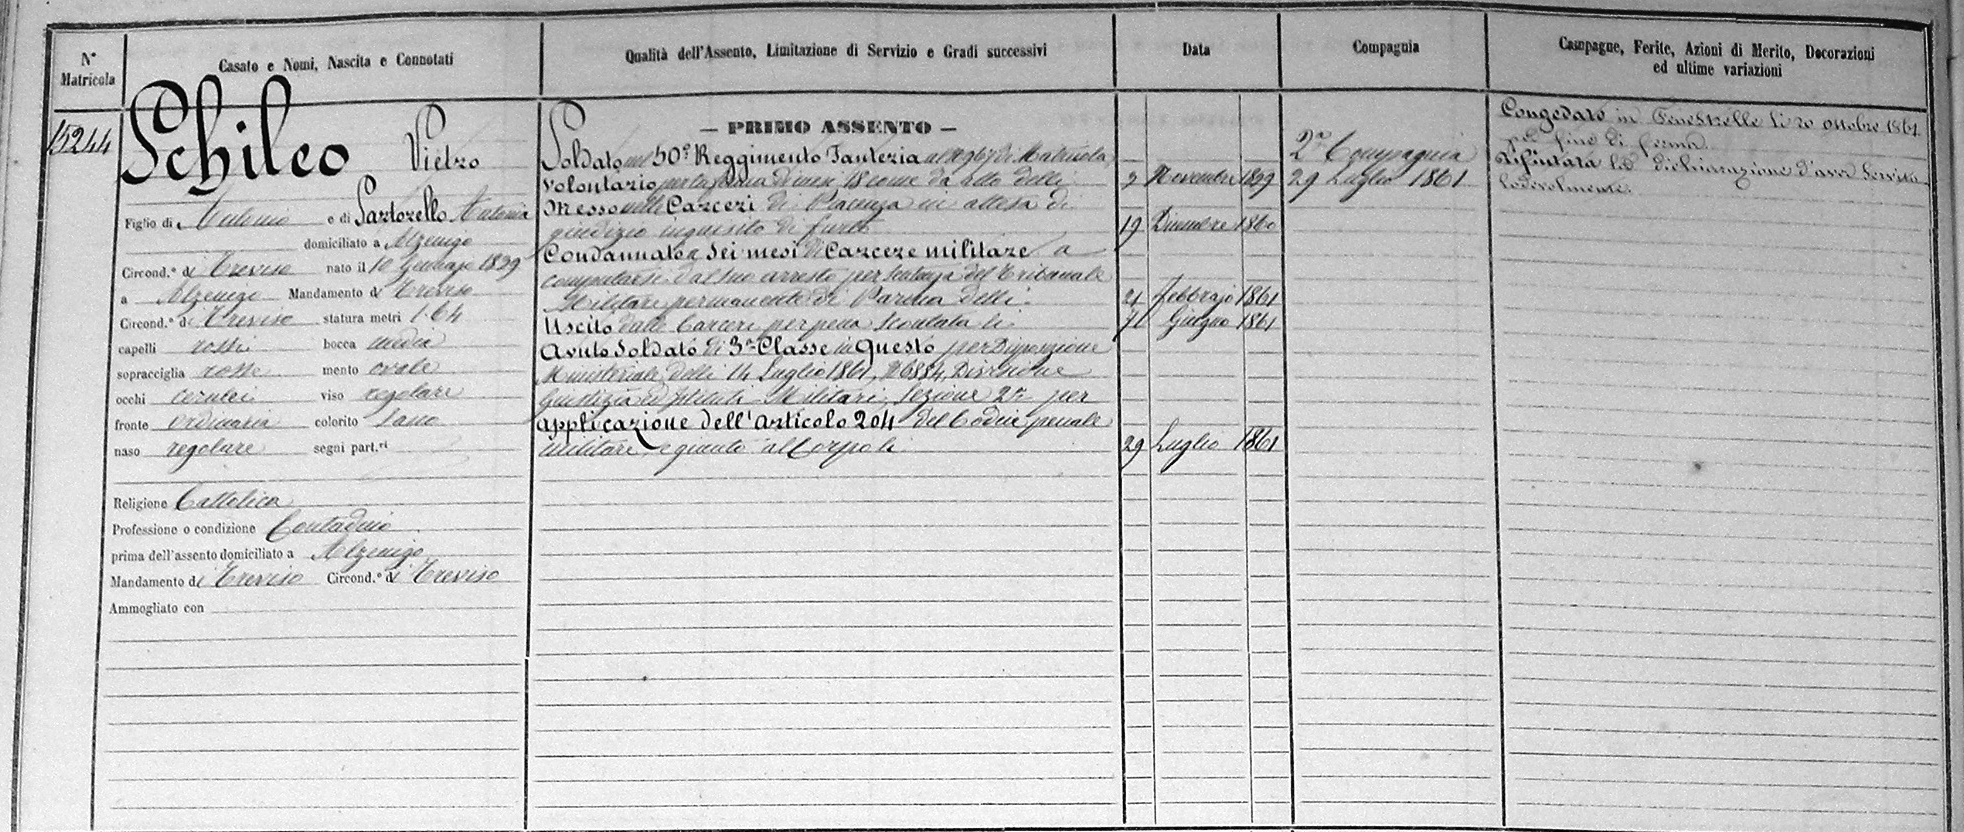 N° Matricola
Casato e Nomi, Nascita e Connotati
Qualità dell'Assento, Limitazione di Servizio e Gradi successivi
Data
Compagnia
Campagne, Ferite, Azioni di Merito, Decorazioni
ed ultime variazioni
15244
Schileo Pietro
Figlio di Antonio e di Sartorello Antonia
domiciliato a Alzenigo
Circond.° di Treviso nato il 10 Gennajo 1839
a Alzenigo Mandamento di Treviso
Circond.° di Treviso statura metri 1.64
capelli rossi bocca media
sopracciglia rosse mento ovale
occhi cerulei viso regolare
fronte ordinaria colorito sano
naso regolare segni part.ri
Religione Cattolica
Professione o condizione Contadino
prima dell'assento domiciliato a Alzenigo
Mandamento di Treviso Circond.° di Treviso
Ammogliato con
— PRIMO ASSENTO —
Soldato nel 50° Reggimento Fanteria al di Matricola
volontario per la ferma di mesi 18 come da atto delli 9 Novembre 1859
Messo nelle Carceri di Piacenza in attesa di
giudizio inquisito di furto 19 Dicembre 1860
Condannato a Sei mesi di Carcere militare a
computarsi dal suo arresto per Sentenza del Tribunale
Militare permanente di Parma delli 21 Febbrajo 1861
Uscito dalle Carceri per pena scontata li Giugno 1861
Avuto Soldato di 3a Classe in questo per Disposizione
Ministeriale delli 14 Luglio 1861, N 6884, Divisione
Giustizia ed Istituti Militari, Sezione 2a per
applicazione dell'articolo 204 del Codice penale
militare, e giunto al Corpo li 29 Luglio 1861
2a Compagnia
29 Luglio 1861
Congedato in Fenestrelle li 20 ottobre 1861
per fine di ferma.
Rifiutata la dichiarazione d'aver Servito
lodevolmente.